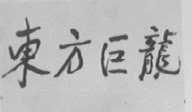 東方巨龍